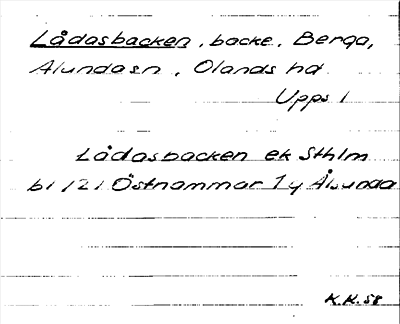 Lådasbacken, backe, Berga,
Alunda sn, Olands hd
Upps l
Lådasbacken ek Sthlm
bl 121 Östhammar Alunda
K.H. 58